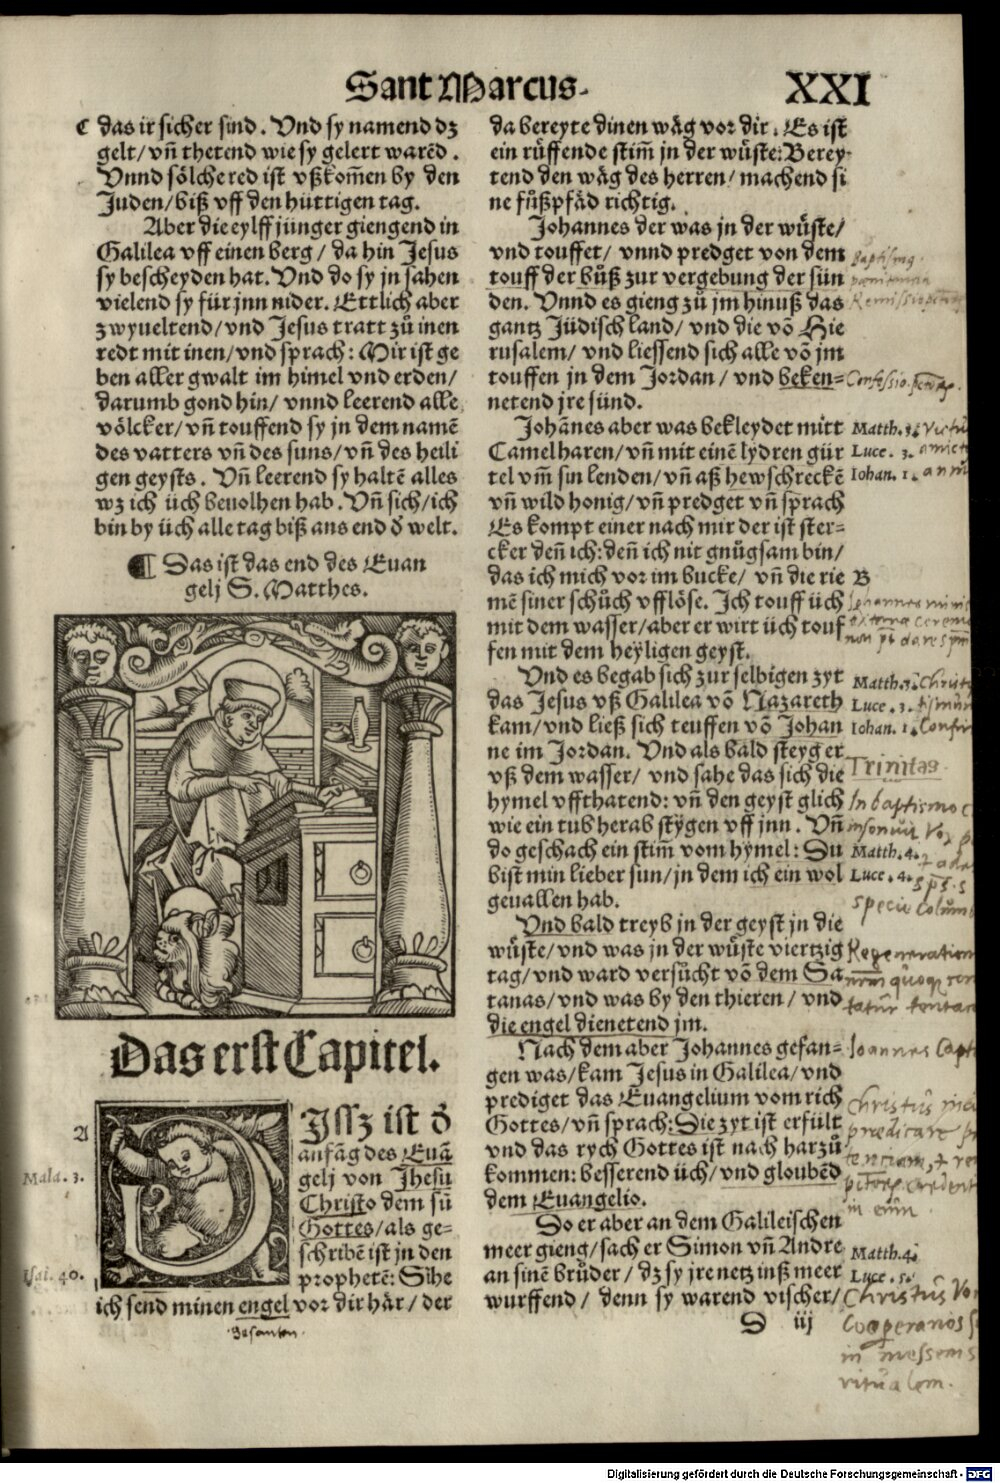 Sant Marcus.
XXI
C das ir sicher sind. Vnd sy namend dz
gelt/ vñ thetend wie sy gelert warēd.
Vnnd sölche red ist vßkom̄en by den
Juden/ biß vff den hüttigen tag.
Aber die eylff jünger giengend in
Galilea vff einen berg/ da hin Jesus
sy bescheyden hat. Vnd do sy jn sahen
vielend sy für jnn nider. Ettlich aber
zwyueltend/ vnd Jesus tratt zů inen
redt mit inen/ vnd sprach: Mir ist ge
ben aller gwalt im himel vnd erden/
darumb gond hin/ vnnd leerend alle
völcker/ vñ touffend sy jn dem namē
des vatters vñ des suns/ vñ des heili
gen geysts. Vñ leerend sy haltē alles
wz ich üch beuolhen hab. Vñ sich/ ich
bin by üch alle tag biß ans end ð welt.
¶ Das ist das end des Euan
gelj S. Matthes.
Das erst Capitel.
A
Mala. 3.
Isai. 40.
DJssz ist ð
anfāg des Euā
gelj von Jhesu
Christo dem sū
Gottes/ als ge-
schribē ist jn den
prophetē: Sihe
ich send minen engel vor dir här/ der
da bereyte dinen wäg vor dir. Es ist
ein rüffende stim̄ jn der wüste: Berey-
tend den wäg des herren/ machend si
ne fůßpfäd richtig.
Johannes der was jn der wüste/
vnd touffet/ vnnd predget von dem
touff der bůß zur vergebung der sün
den. Vnnd es gieng zů jm hinuß das
gantz Jüdisch land/ vnd die vō Hie
rusalem/ vnd liessend sich alle vō jm
touffen jn dem Jordan/ vnd beken-
netend jre sünd.
Johānes aber was bekleydet mitt
Camelharen/ vñ mit einē lydren gür
tel vm̄ sin lenden/ vñ aß hewschreckē
vñ wild honig/ vñ predget vñ sprach
Es kompt einer nach mir der ist ster-
cker deñ ich: deñ ich nit gnůgsam bin/
das ich mich vor im bucke/ vñ die rie
mē siner schůch vfflöse. Ich touff üch
mit dem wasser/ aber er wirt üch touf
fen mit dem heyligen geyst.
Vnd es begab sich zur selbigen zyt
das Jesus vß Galilea vō Nazareth
kam/ vnd ließ sich teuffen vō Johan
ne im Jordan. Vnd als bald steyg er
vß dem wasser/ vnd sahe das sich die
hymel vffthatend: vñ den geyst glich
wie ein tub herab stygen vff jnn. Vñ
do geschach ein stim̄ vom hymel: Du
bist min lieber sun/ jn dem ich ein wol
geuallen hab.
Vnd bald treyb jn der geyst jn die
wüste/ vnd was jn der wůste viertzig
tag/ vnd ward versůcht vō dem Sa
tanas/ vnd was by den thieren/ vnd
die engel dienetend jm.
Nach dem aber Johannes gefan-
gen was/ kam Jesus in Galilea/ vnd
prediget das Euangelium vom rich
Gottes/ vñ sprach: Die zyt ist erfült
vnd das rych Gottes ist nach harzů
kommen: besserend üch/ vnd gloubēd
dem Euangelio.
So er aber an dem Galileischen
meer gieng/ sach er Simon vñ Andre
an sinē brůder/ dz sy jre netz inß meer
wurffend/ denn sy warend vischer/
D iij
Remissio
Confessio
Matth. 3.
Luce. 3.
Iohan. 1.
B
Matth. 3.
Luce. 3.
Iohan. 1.
Trinitas.
In baptismo
Matth. 4.
Luce. 4.
specie Columb
Ioannes Capt
Christus
in messem
Matth. 4.
Luce. 5.
Digitalisierung gefördert durch die Deutsche Forschungsgemeinschaft - DFG